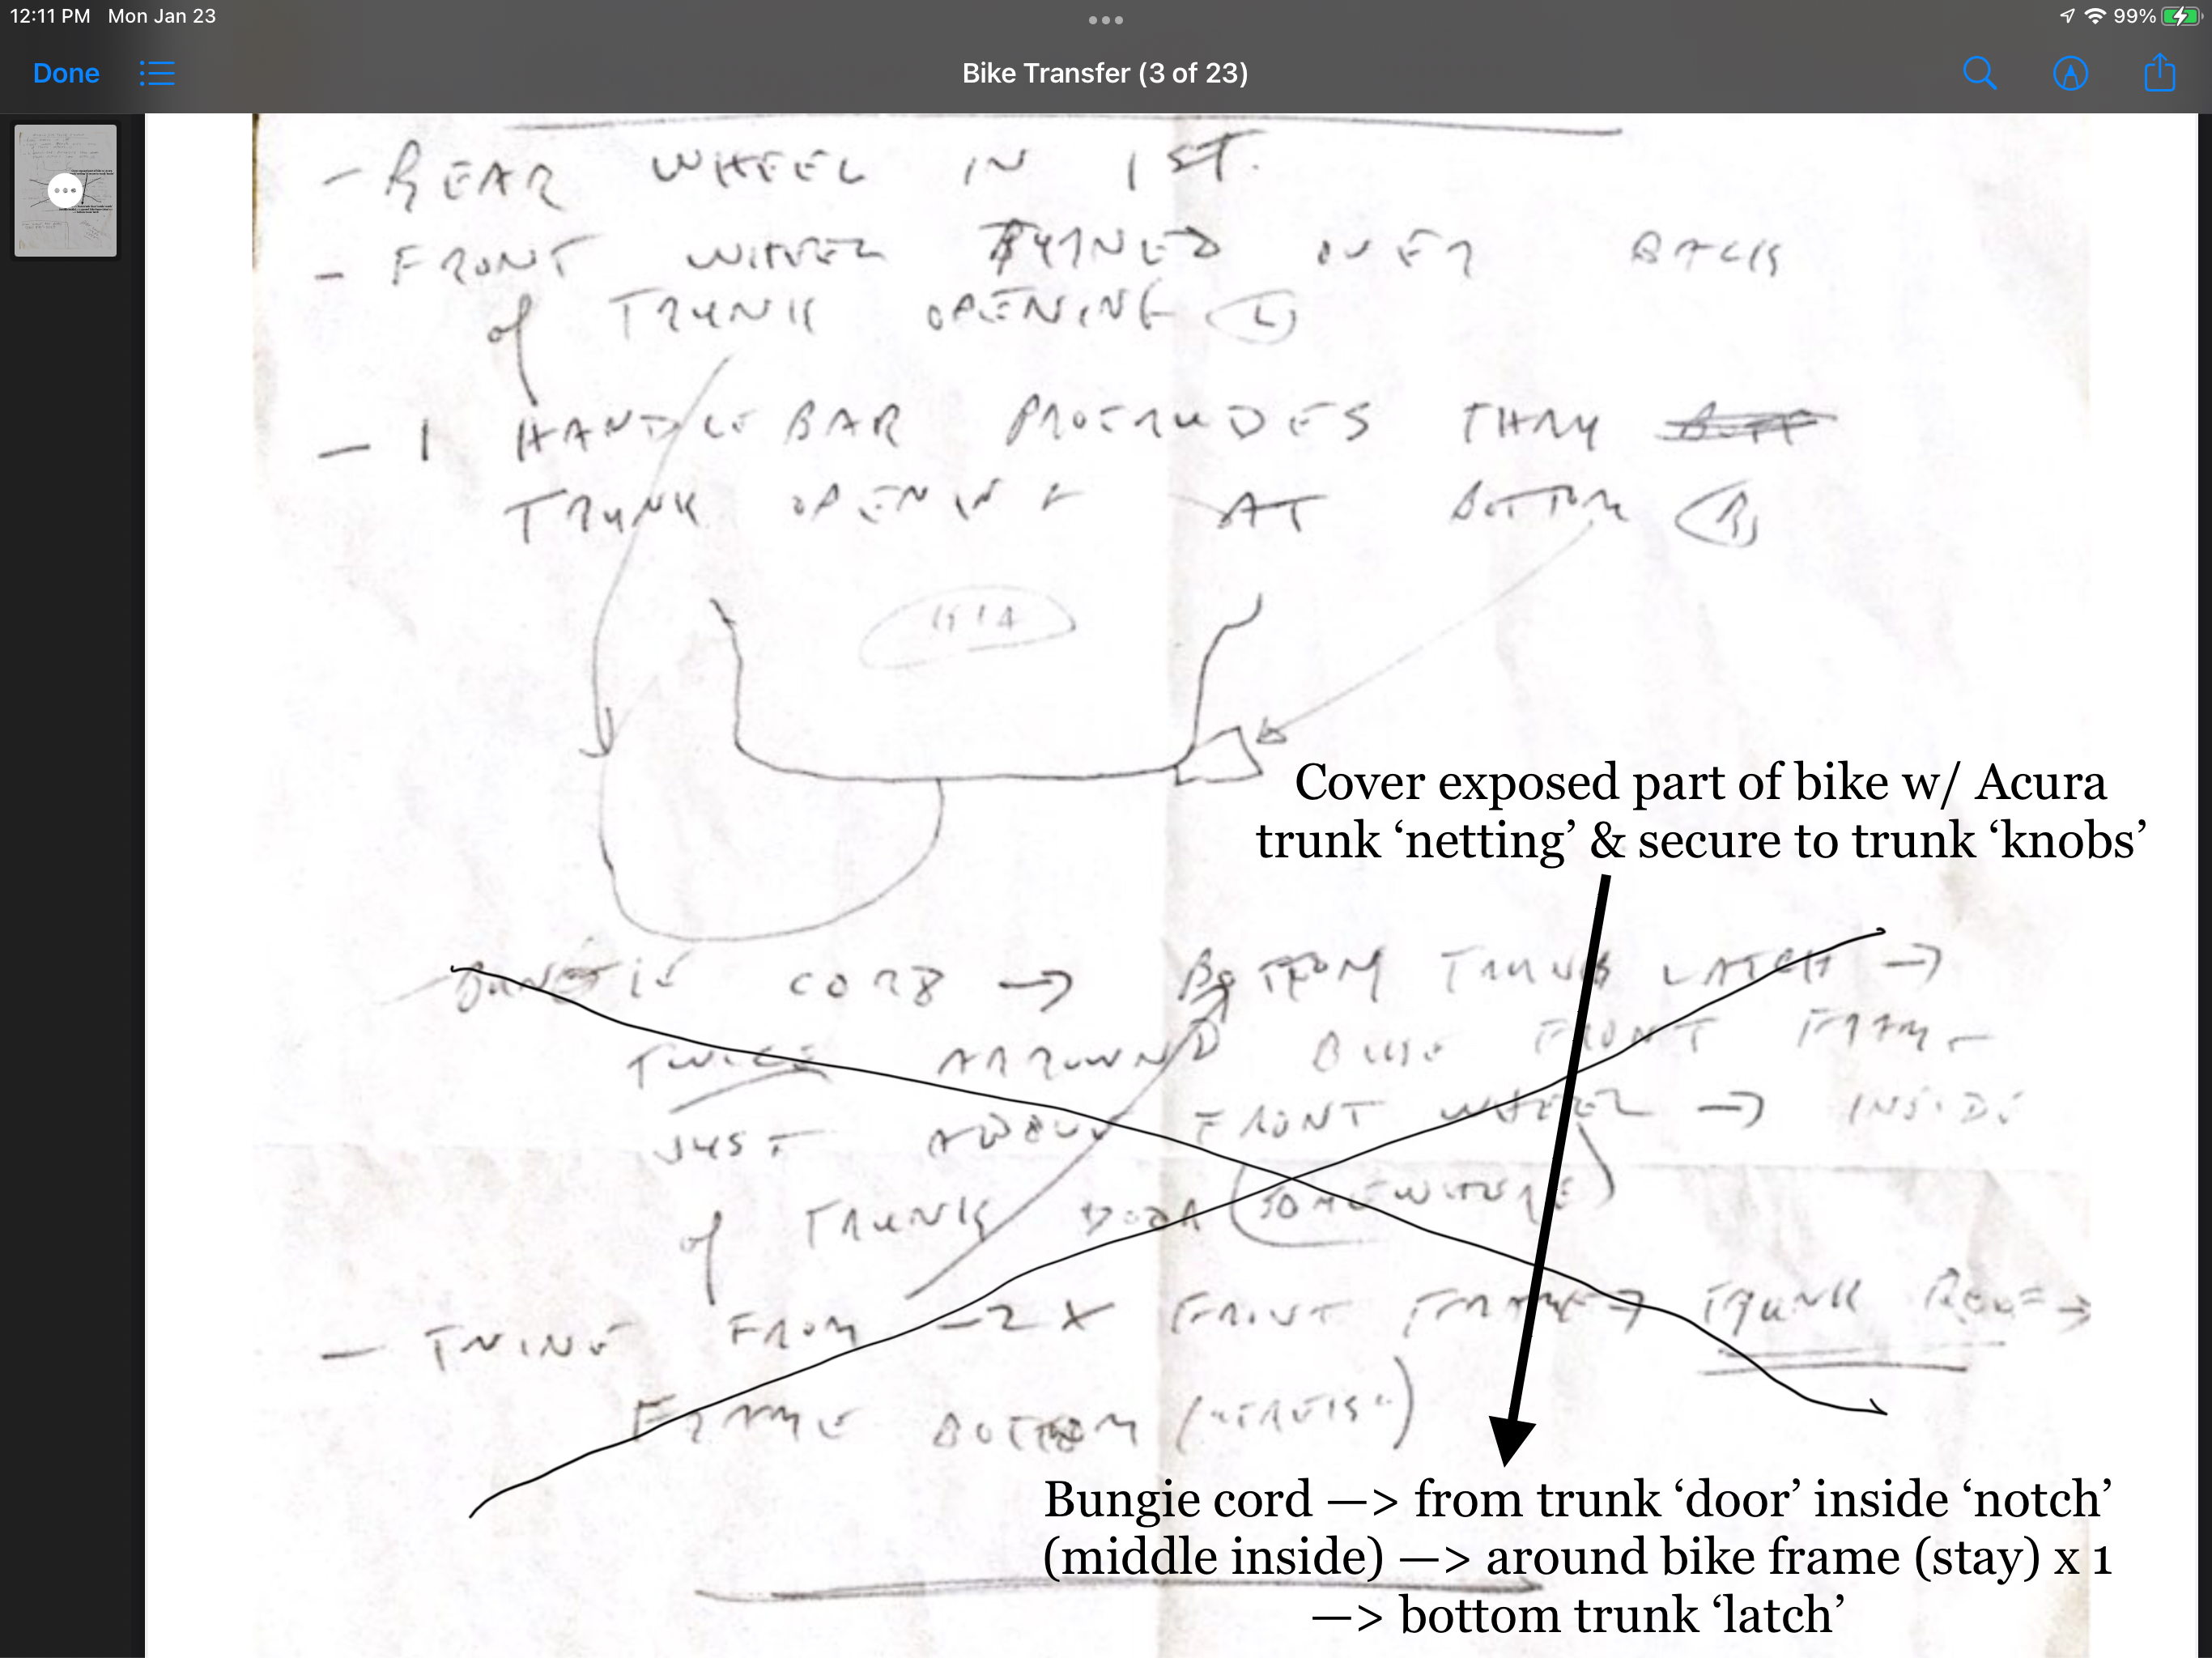 12:11 PM Mon Jan 23
99%
Done
Bike Transfer (3 of 23)
- REAR WHEEL IN 1ST.
- FRONT WHEEL TURNED OVER BACK
of TRUNK OPENING (L)
- 1 HANDLEBAR PROTRUDES THRU
TRUNK OPENING AT BOTTOM (R)
KIA
Cover exposed part of bike w/ Acura
trunk ‘netting’ & secure to trunk ‘knobs’
BUNGIE CORD → BOTTOM TRUNK LATCH →
TWICE ARROUND BIKE FRONT FRAME
JUST ABOVE FRONT WHEEL → INSIDE
of TRUNK DOOR (SOMEWHERE)
- TWINE FROM - 2 X FRONT FRAME → TRUNK →
FRAME BOTTOM
Bungie cord —> from trunk ‘door’ inside ‘notch’
(middle inside) —> around bike frame (stay) x 1
—> bottom trunk ‘latch’